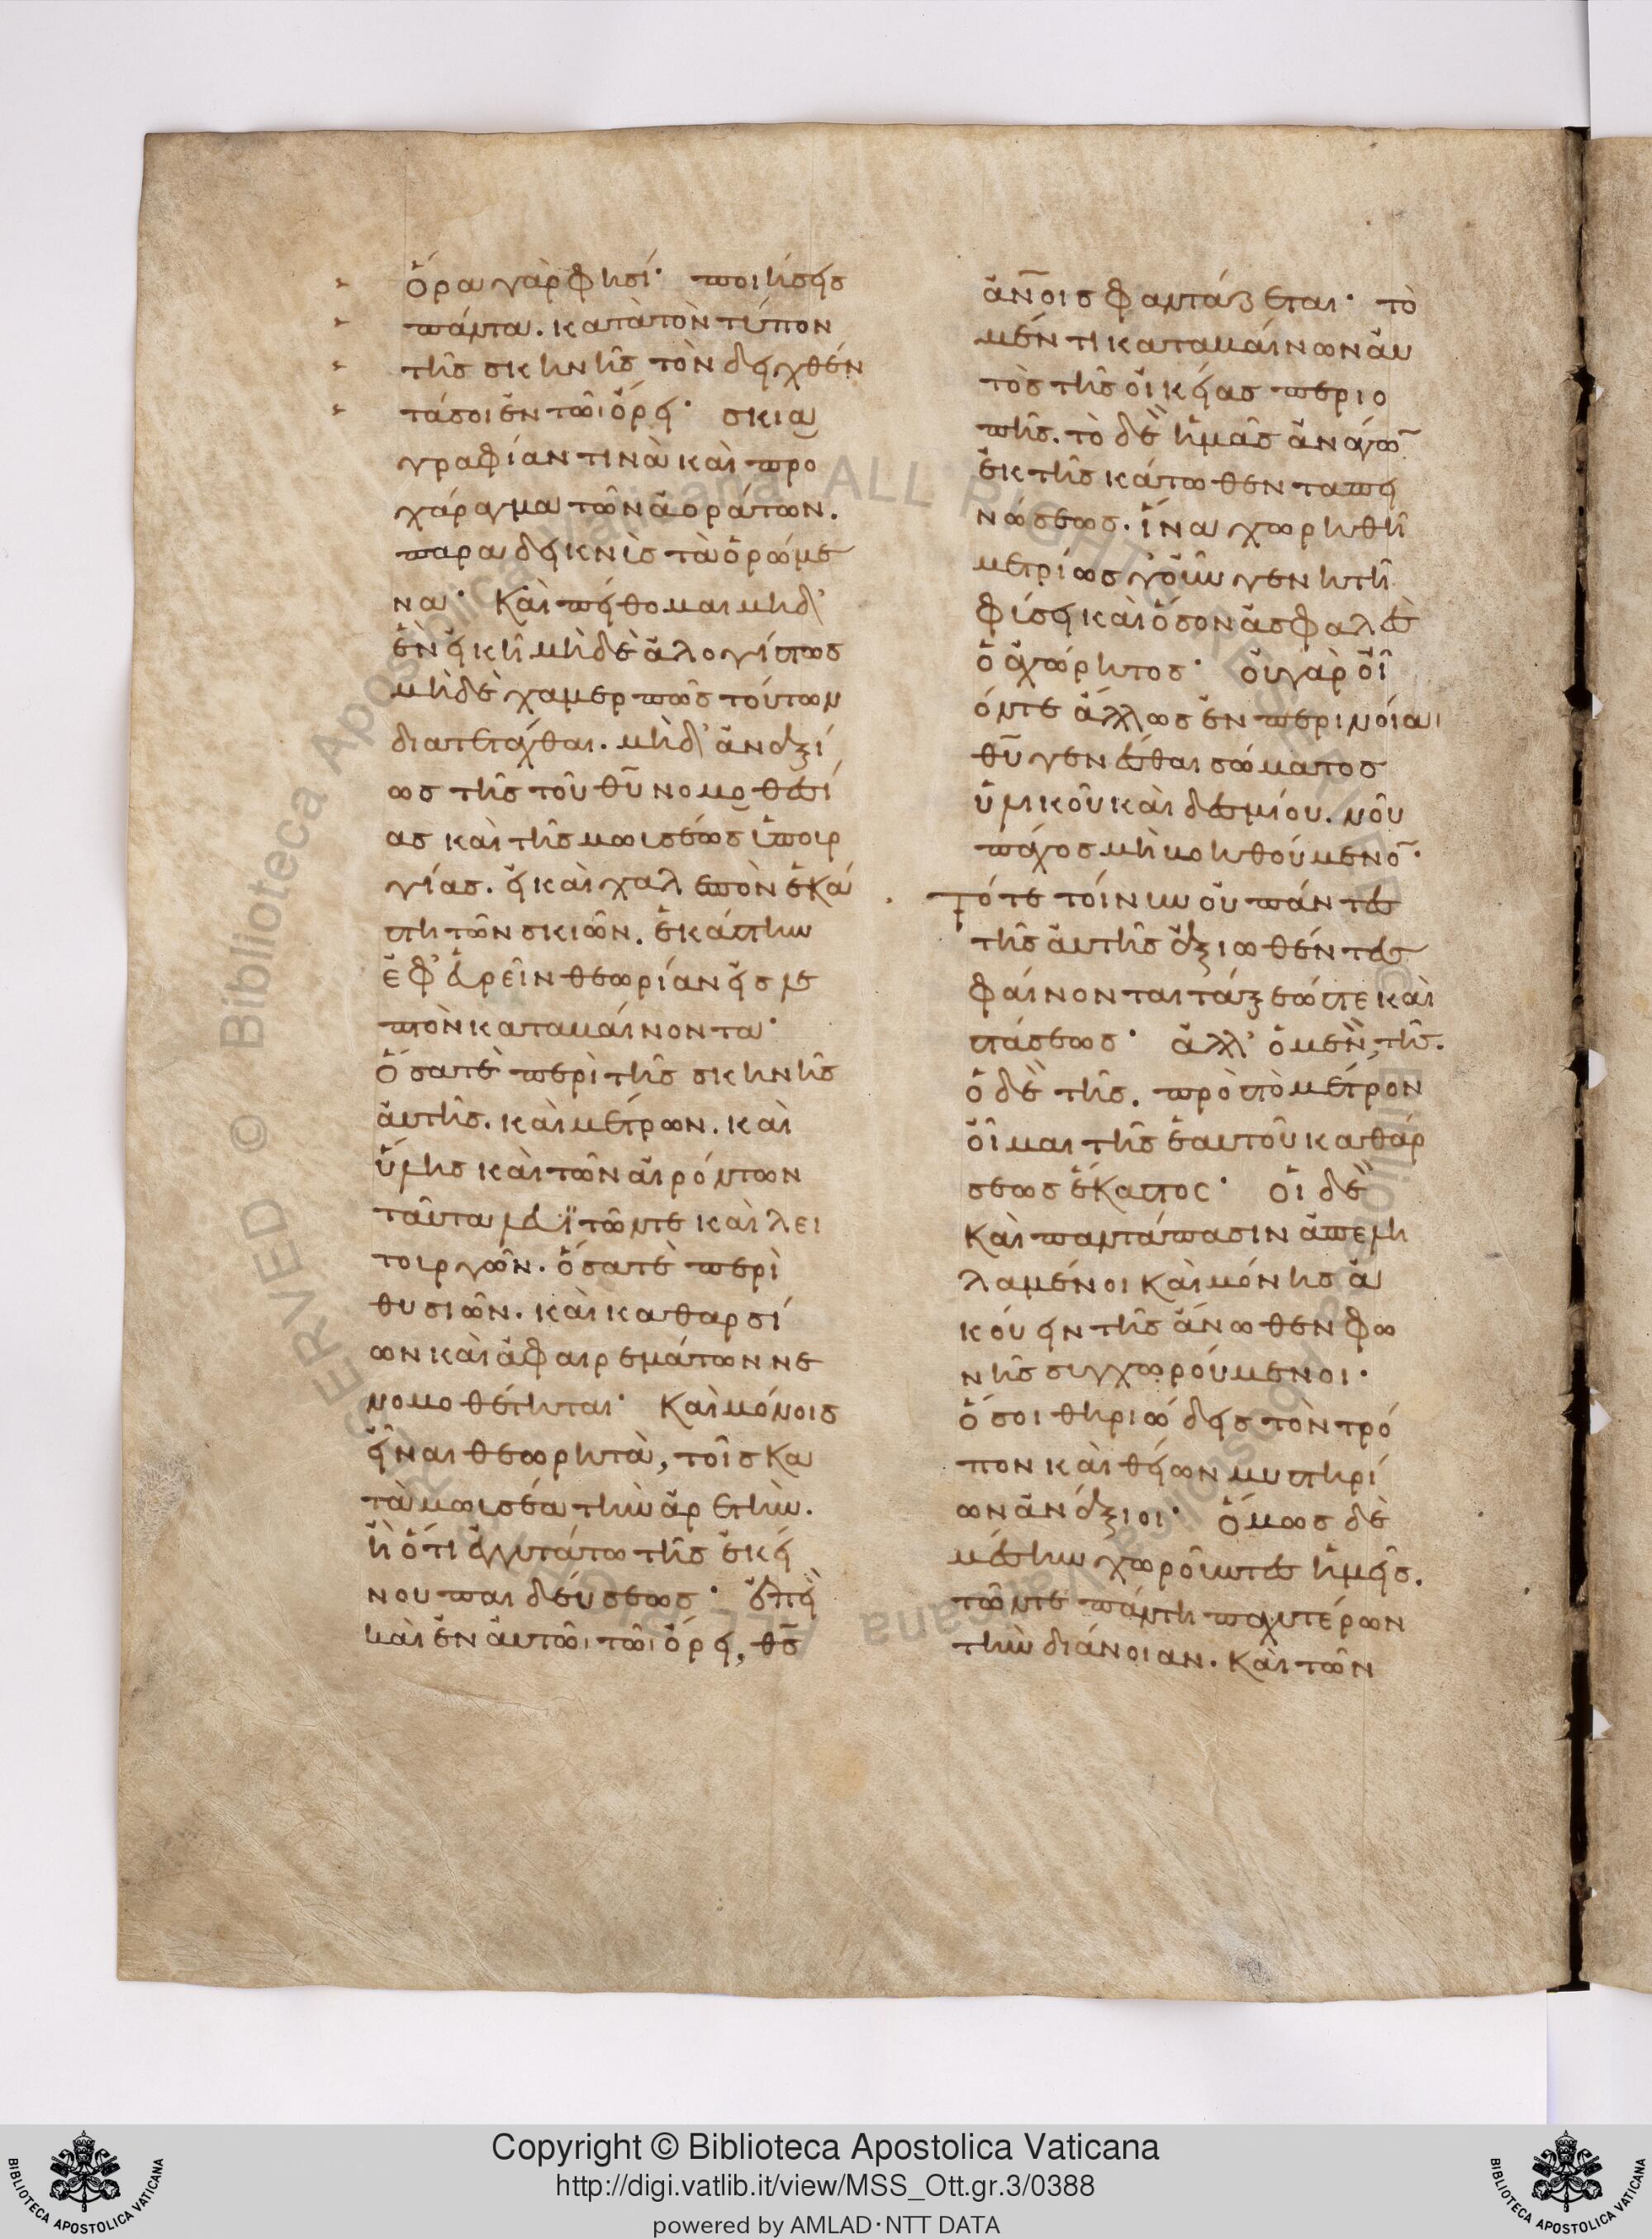 ὅρα γὰρ φησί· ποιήσεις
πάντα. κατὰ τὸν τύπον
τῆς σκηνῆς τὸν δειχθέν
τά σοι ἐν τῶι ὄρει· σκια
γραφίαν τινὰ καὶ προ
χάραγμα τῶν ἀοράτων.
παραδεικνὺς τὰ ὁρώμε
να· Καὶ πείθομαι μηδ'
ἐν εἰκῆ μὴδὲ ἀλογίστως
μὴδὲ χαμερπῶς τούτων
διατετάχθαι. μὴδ' ἀναξί
ως τῆς τοῦ θῦ νομοθεσί
ας καὶ τῆς μωισέως ὑπουρ
γίας. εἰ καὶ χαλεπὸν ἑκά
στη τῶν σκιῶν. ἑκάστην
ἐφ' εὑρεῖν θεωρίαν εἰς λε
πτὸν καταβαίνοντα·
Ὅσα τὲ περὶ τῆς σκηνῆς
αὐτῆς. καὶ μέτρων. καὶ
ὕλης καὶ τῶν αἰρόντων
ταῦτα λευϊτῶν τε καὶ λει
τουργῶν. ὅσα τὲ περὶ
θυσιῶν. καὶ καθαρσί
ων καὶ ἀφαιρεμάτων νε
νομοθέτηται· Καὶ μόνοις
εἶναι θεωρητὰ, τοῖς κα
τὰ μωισέα τὴν ἀρετὴν.
ἢ ὅτι ἐγγυτάτω τῆς ἐκεί
νου παιδεύσεως· ἐπεὶ
κὰν ἐν αὐτῶι τῶι ὄρει, θς
ἀνοις φαντάζεται· τὸ
μέν τι καταβαίνων αὐ
τὸς τῆς οἰκείας περιο
πῆς. τὸ δὲ ἡμᾶς ἀνάγω
ἐκ τῆς κάτωθεν ταπει
νώσεως. ἵνα χωρηθῆ
μετρίως γοῦν γενητῆ
φύσει καὶ ὅσον ἀσφαλὲς
ὁ ἀχώρητος· οὐ γὰρ οἷ
όν τε ἄλλως ἐν περινοίαι
θῦ γενέσθαι σώματος
ὑλικοῦ καὶ δεσμίου. νοῦ
πάχος μὴ βοηθούμενο·
Τότε τοίνυν οὐ πάντες
τῆς αὐτῆς ἀξιωθέντες
φαίνονται τάξεώς τε καὶ
στάσεως· ἀλλ' ὁ μὲν τῆς.
ὁ δὲ τῆς. πρὸς τὸ μέτρον
οἶμαι τῆς ἑαυτοῦ καθάρ
σεως ἕκαστος· οἱ δὲ
Καὶ παντάπασιν ἀπελη
λαμένοι καὶ μόνης ἀ
κούειν τῆς ἄνωθεν φω
νῆς συγχωρούμενοι·
Ὅσοι θηριώδεις τὸν τρό
πον καὶ θείων μυστηρί
ων ἀνάξιοι· Ὅμως δὲ
μέσην χωροῦντες ἡμεῖς.
τῶν τε πάντη παχυτέρων
τὴν διάνοιαν. Καὶ τῶν
Copyright © Biblioteca Apostolica Vaticana
http://digi.vatlib.it/view/MSS_Ott.gr.3/0388
powered by AMLAD·NTT DATA
BIBLIOTECA APOSTOLICA VATICANA
BIBLIOTECA APOSTOLICA VATICANA